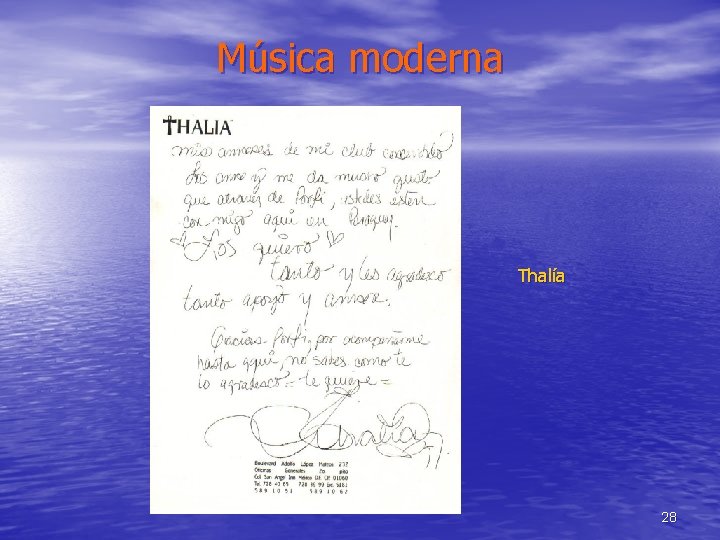 Música moderna
THALIA
mis amores de mi club
los amo y me da mucho gusto
que atravez de Porfi, ustedes esten
conmigo aqui en Paraguay.
Los quiero
tanto y les agradesco
tanto apoyo y amor.
Gracias Porfi, por acompañarme
hasta aqui, no sabes como te
lo agradesco = te quiere =
Thalía
Boulevard Adolfo López Mateos 232
Oficinas Generales
Col San Angel Inn México DF CP 01060
Tel. 728
Thalía
28